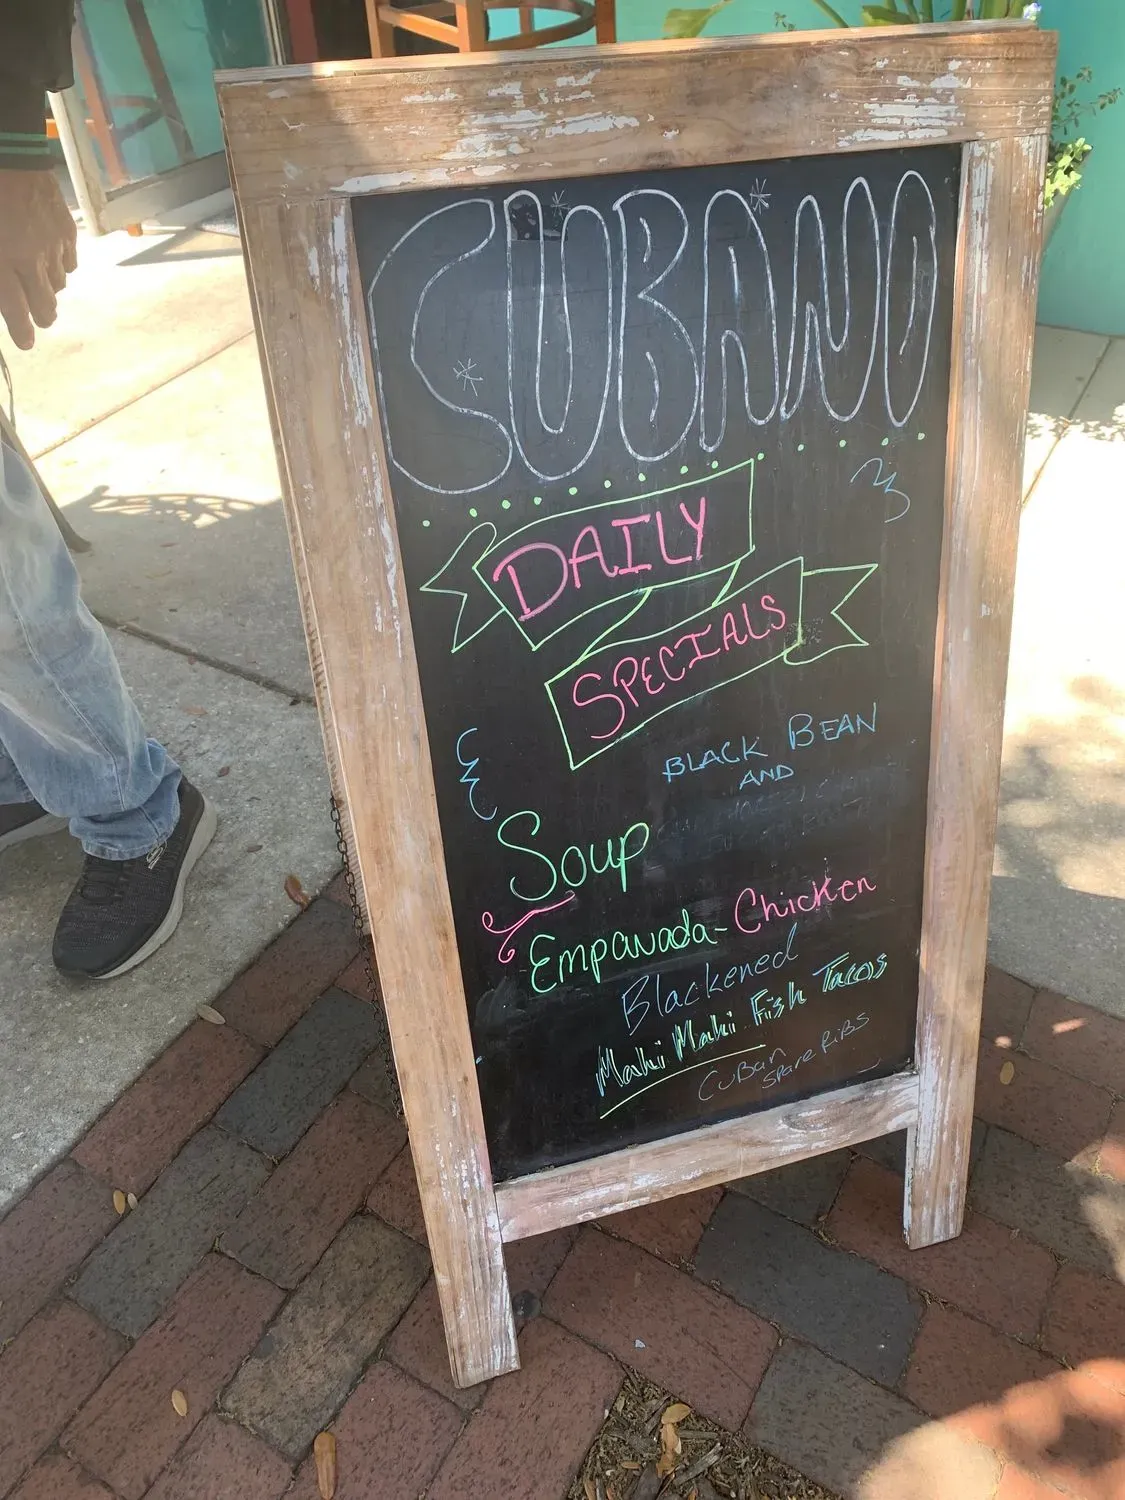 CUBANO
DAILY
SPECIALS
BLACK BEAN
AND
Soup
Empanada-Chicken
Blackened
Mahi Mahi Fish Tacos
CuBan
Spare RiBS